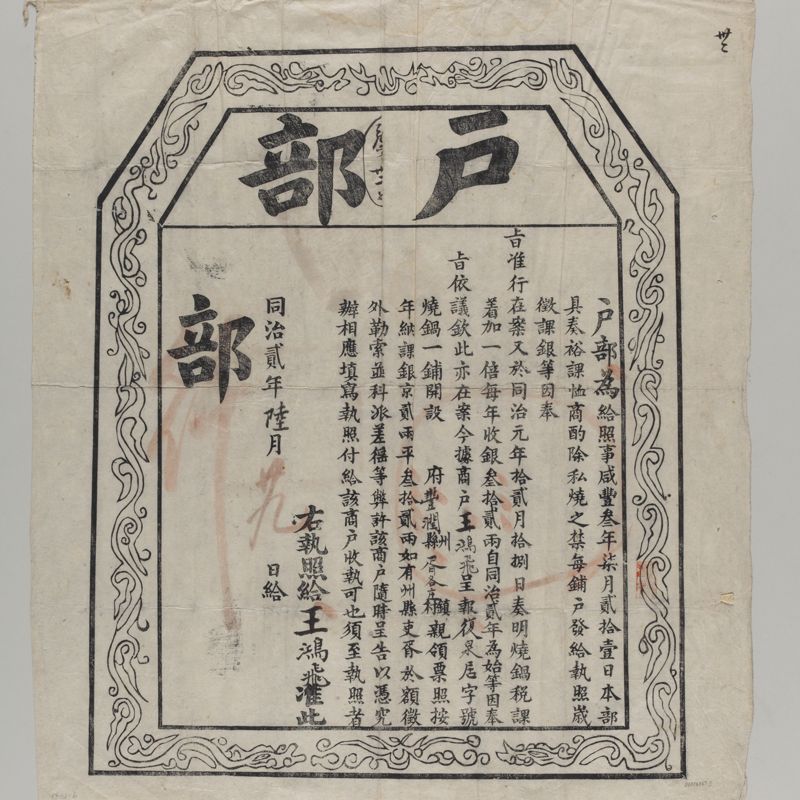 戶部
戶部為給照事咸豐叁年柒月貳拾壹日本部
具奏裕課恤商酌除私燒之禁每鋪戶發給執照歲
徵課銀等因奉
旨准行在案又於同治元年拾貳月拾捌日奏明燒鍋稅課
着加一倍每年收銀叁拾貳兩自同治貳年為始等因奉
旨依議欽此亦在案今據商戶王鴻飛呈報復泉居字號
燒鍋一鋪開設 府豐潤縣州 各庄村鎮親領票照按
年納課銀京貳兩平叁拾貳兩如有州縣吏胥於額徵
外勒索並科派差徭等弊許該商戶隨時呈告以憑究
辦相應填寫執照付給該商戶收執可也須至執照者
右執照給王鴻飛准此
同治貳年陸月 日給
部